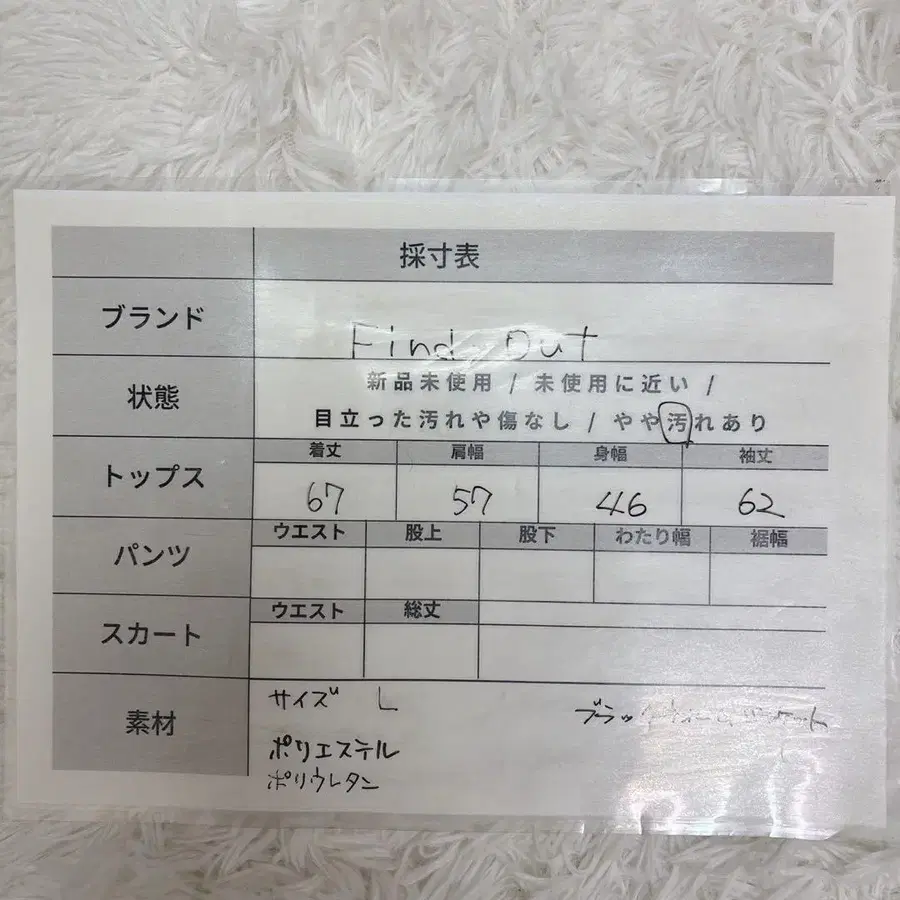 採寸表
ブランド Find Out
状態 新品未使用 / 未使用に近い /
目立った汚れや傷なし / やや汚れあり
トップス 着丈 肩幅 身幅 袖丈
67 57 46 62
パンツ ウエスト 股上 股下 わたり幅 裾幅
スカート ウエスト 総丈
素材 サイズ L
ポリエステル
ポリウレタン